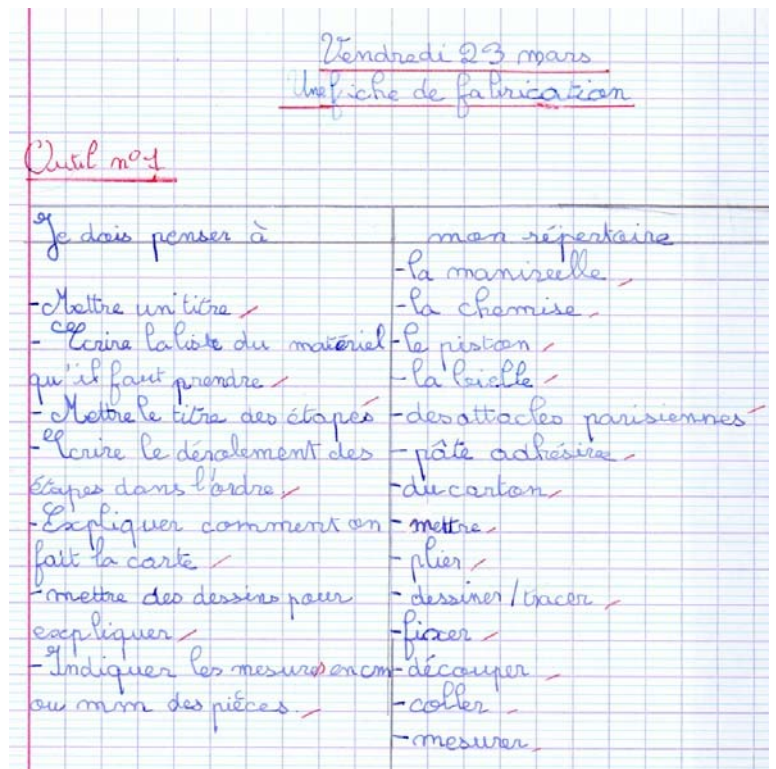 Vendredi 23 mars
Une fiche de fabrication
Outil n°1
Je dois penser à
- Mettre un titre
- Ecrire la liste du matériel
qu'il faut prendre
- Mettre le titre des étapes
- Ecrire le dérolement des
étapes dans l'ordre
- Expliquer comment on
fait la carte
- mettre des dessins pour
expliquer
- Indiquer les mesures en cm
ou mm des pièces.
mon répertoire
- la manivelle
- la chemise
- le piston
- la bielle
- des attaches parisiennes
- pâte adhésive
- du carton
- mettre
- plier
- dessiner / tracer
- fixer
- découper
- coller
- mesurer